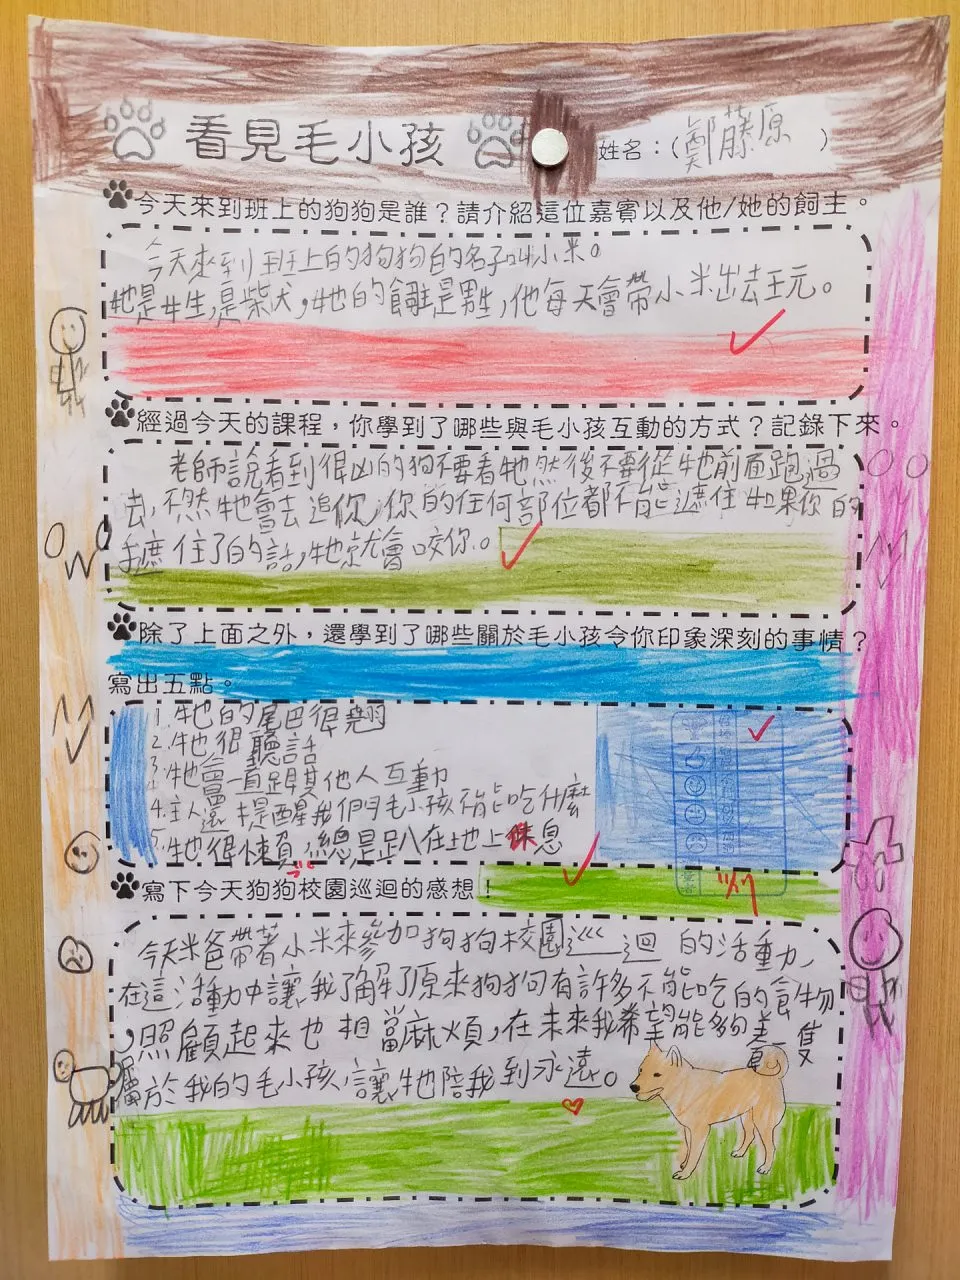 看見毛小孩
姓名：(鄭藤原)
今天來到班上的狗狗是誰？請介紹這位嘉賓以及他/她的飼主。
今天來到班上的狗狗的名子叫小米。
牠是女生,是柴犬,牠的飼主是男生,他每天會帶小米出去玩。
經過今天的課程，你學到了哪些與毛小孩互動的方式？記錄下來。
老師說看到很凶的狗不要看牠然後不要從牠前面跑過
去,不然牠會去追你,你的任何部位都不能遮住如果你的
手遮住了的話,牠就會咬你。
除了上面之外，還學到了哪些關於毛小孩令你印象深刻的事情？
寫出五點。
1.牠的尾巴很翹
2.牠很聽話
3.牠會一直跟其他人互動
4.主人還提醒我們毛小孩不能吃什麼
5.牠很懶,總是趴在地上休息
寫下今天狗狗校園巡迴的感想！
今天米爸帶著小米來參加狗狗校園巡迴的活動,
在這活動中讓我了解了原來狗狗有許多不能吃的食物
,照顧起來也相當麻煩,在未來我希望能夠養一隻
屬於我的毛小孩,讓牠陪我到永遠。